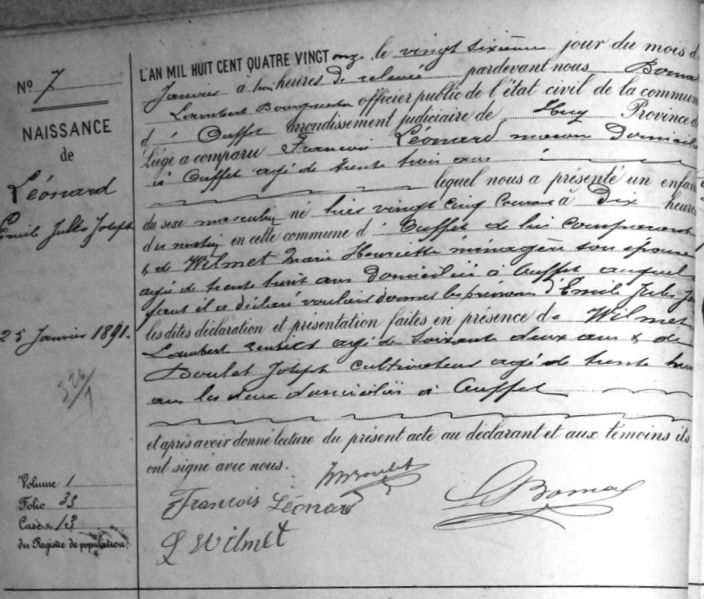 N° 7
NAISSANCE
de
Léonard
Emile Jules Joseph
25 Janvier 1891.
326/7
Volume 1
Folio 35
Case 15
du Registre de population.
L'AN MIL HUIT CENT QUATRE VINGT onze le vingt sixième jour du mois d
Janvier à trois heures de relevée pardevant nous Borna
Lambert officier public de l'état civil de la commun
d' Ouffet arrondissement judiciaire de Huy Province d
Liége a comparu François Léonard maçon domicilié
à Ouffet agé de trente trois ans
lequel nous a présenté un enfan
du sexe masculin né hier vingt cinq courant à Dix heures
du matin en cette commune d' Ouffet de lui comparant
& de Wilmet Marie Henriette ménagère son épouse
agée de trente huit ans domiciliée à Ouffet auquel
enfant il a déclaré vouloir donner les prénoms d'Emile Jules Jo
les dites déclaration et présentation faites en présence de Wilmet
Lambert rentier agé de soixante deux ans & de
Boulet Joseph cultivateur agé de trente
ans les deux domiciliés à Ouffet
et après avoir donné lecture du présent acte au déclarant et aux témoins ils
ont signé avec nous.
Boulet
François Léonard
L Borna
L Wilmet